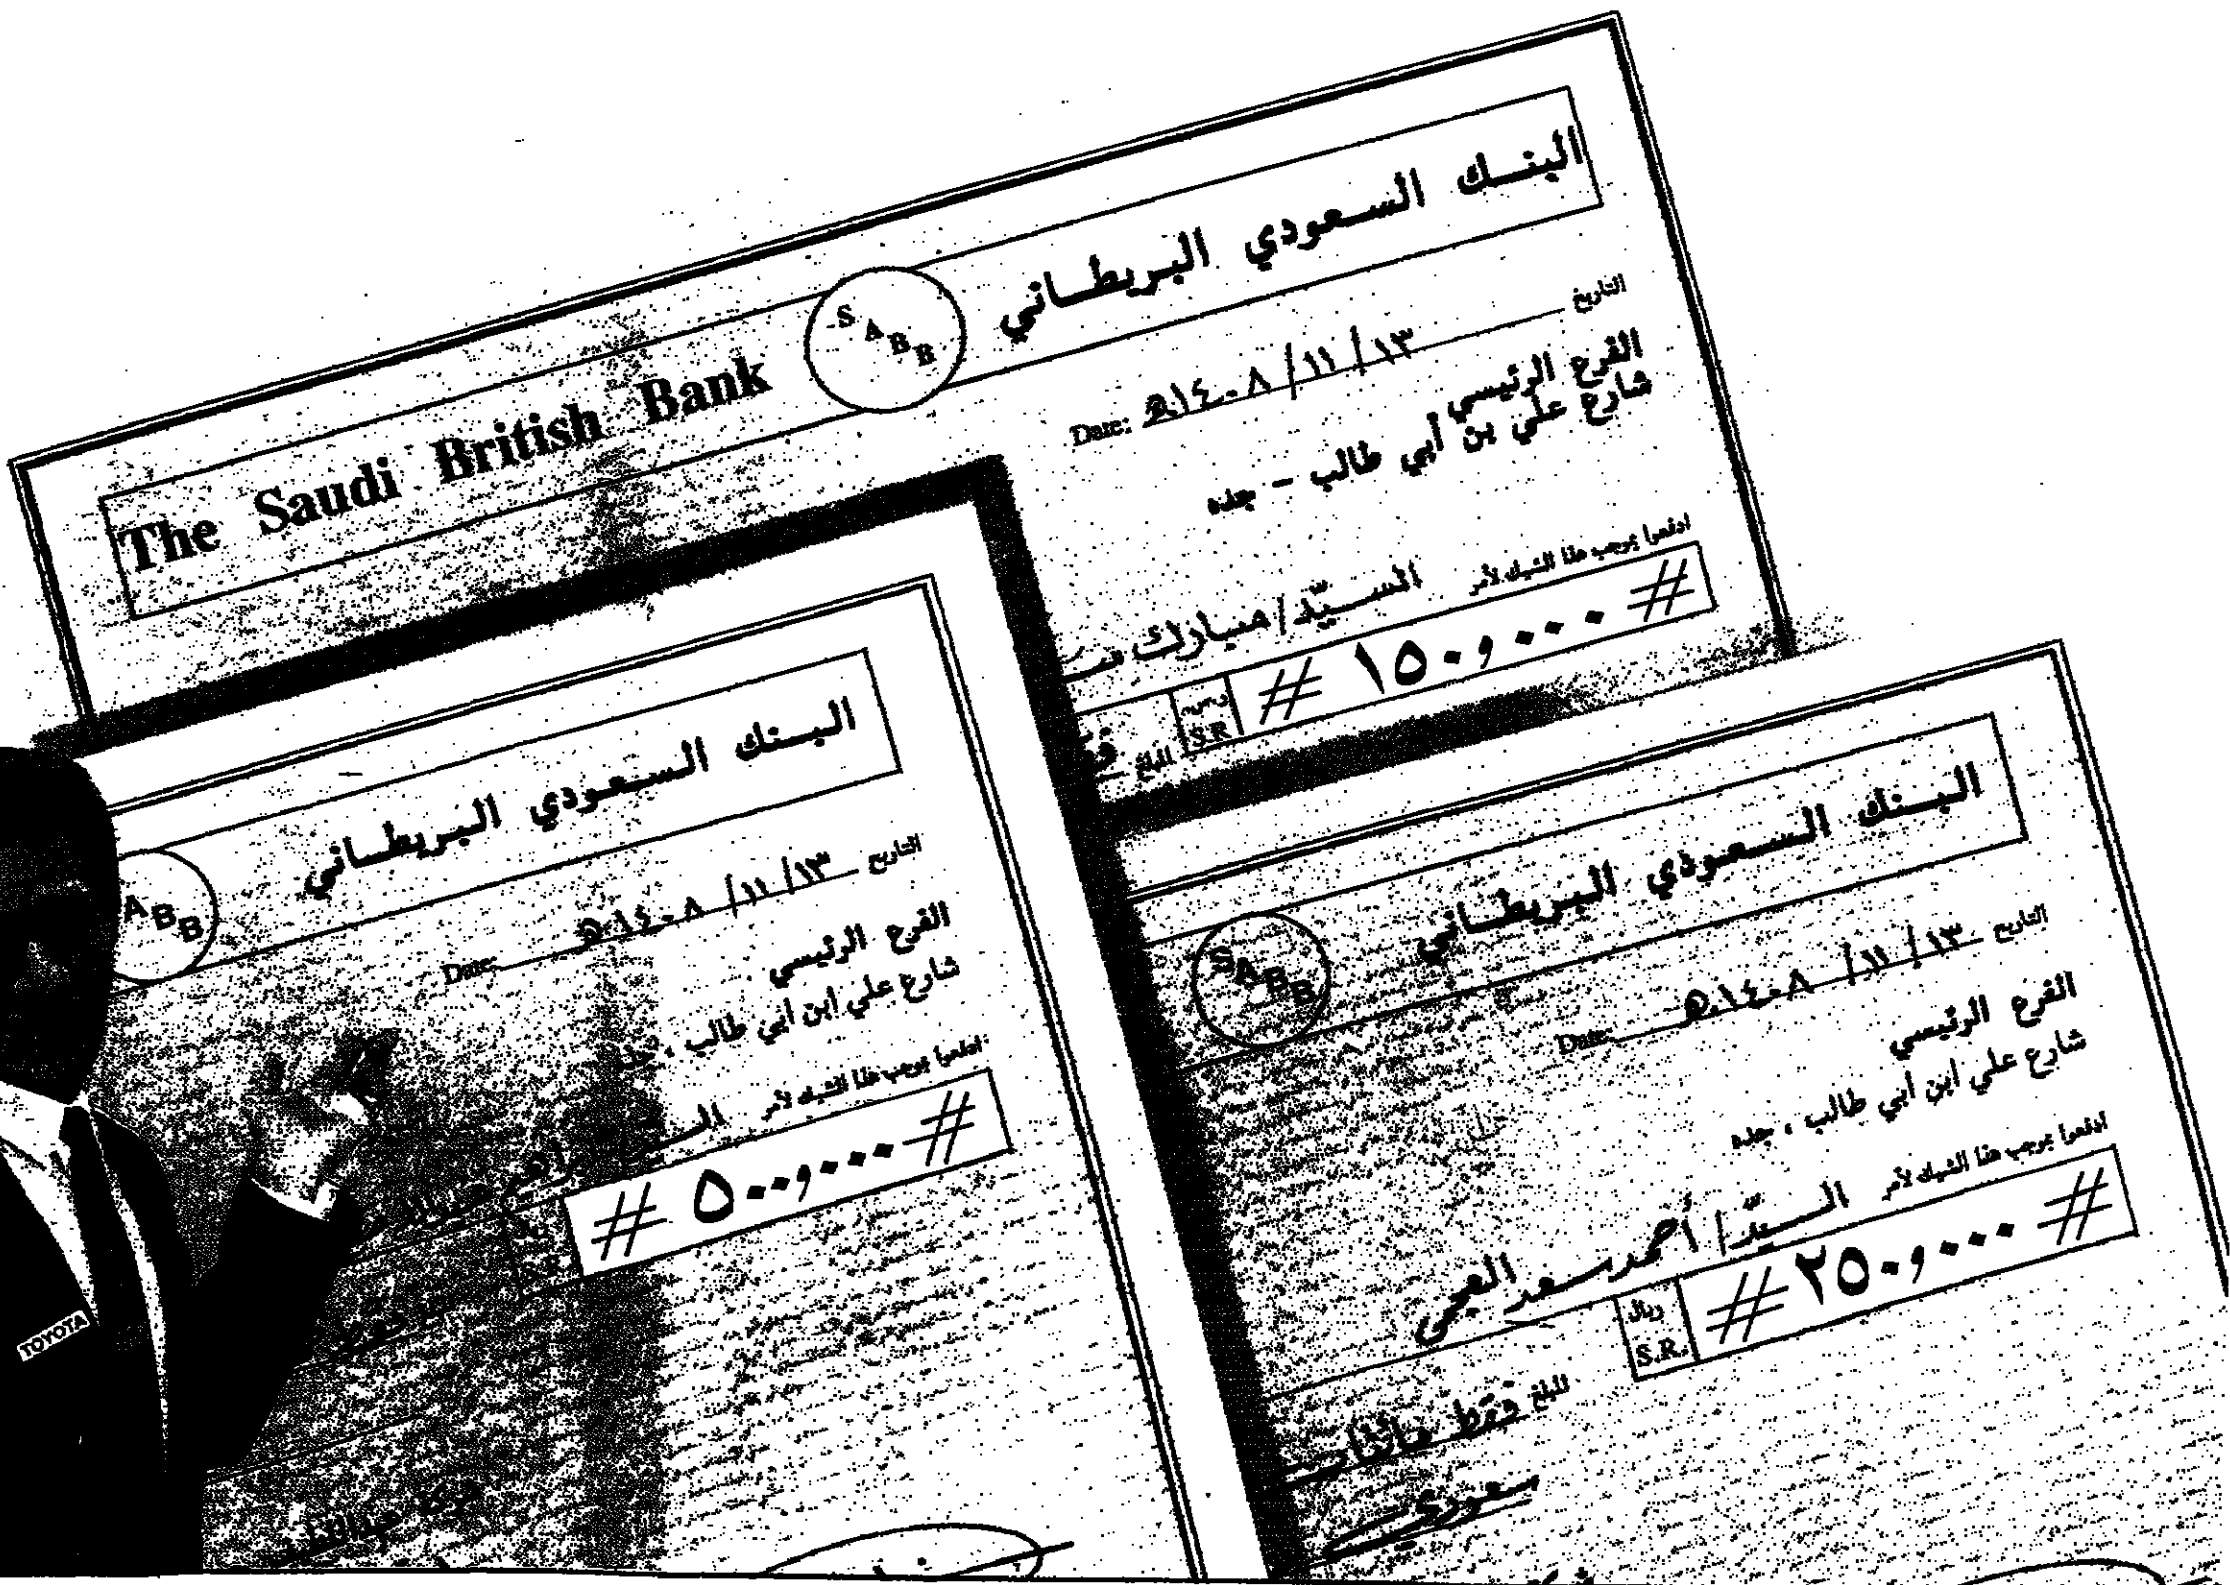 البنك السعودي البريطاني
S A B B
The Saudi British Bank
التاريخ ١٣/ ١١/ ١٤٠٨ه Date:
الفرع الرئيسي
شارع علي بن أبي طالب - جده
ادفعوا بموجب هذا الشيك لأمر السيّد/ مبارك
# ١٥٠,٠٠٠ #
S.R
المبلغ
البنك السعودي البريطاني
A B B
التاريخ ١٣/ ١١/ ١٤٠٨ه Date:
الفرع الرئيسي
شارع علي ابن أبي طالب ، جده
ادفعوا بموجب هذا الشيك لأمر
# ٥٠٠,٠٠٠ #
TOYOTA
البنك السعودي البريطاني
S A B B
التاريخ ١٣/ ١١/ ١٤٠٨ه Date:
الفرع الرئيسي
شارع علي ابن أبي طالب ، جده
ادفعوا بموجب هذا الشيك لأمر السيّد/ أحمد سعد العجمي
# ٢٥٠,٠٠٠ #
ريال
S.R.
المبلغ فقط مائتان
سعودي